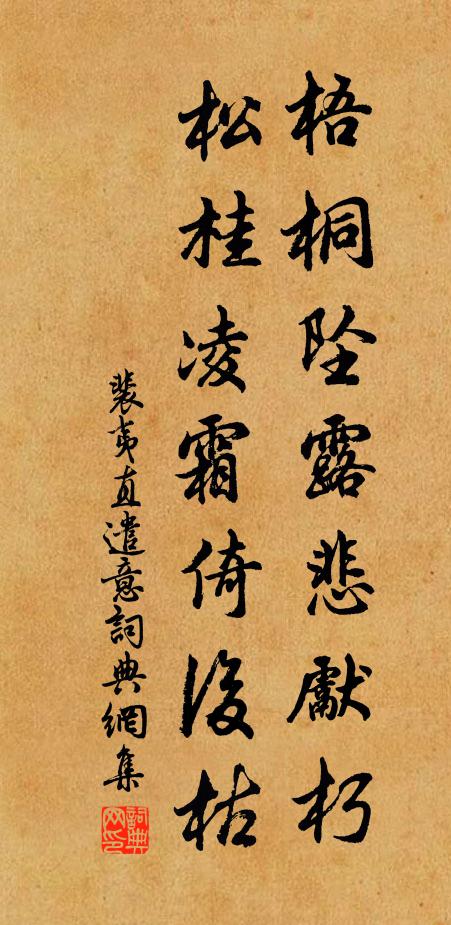 梧桐坠露悲獻朽
松桂凌霜倚後枯
裴夷直遣意詞典網集
詞典网印